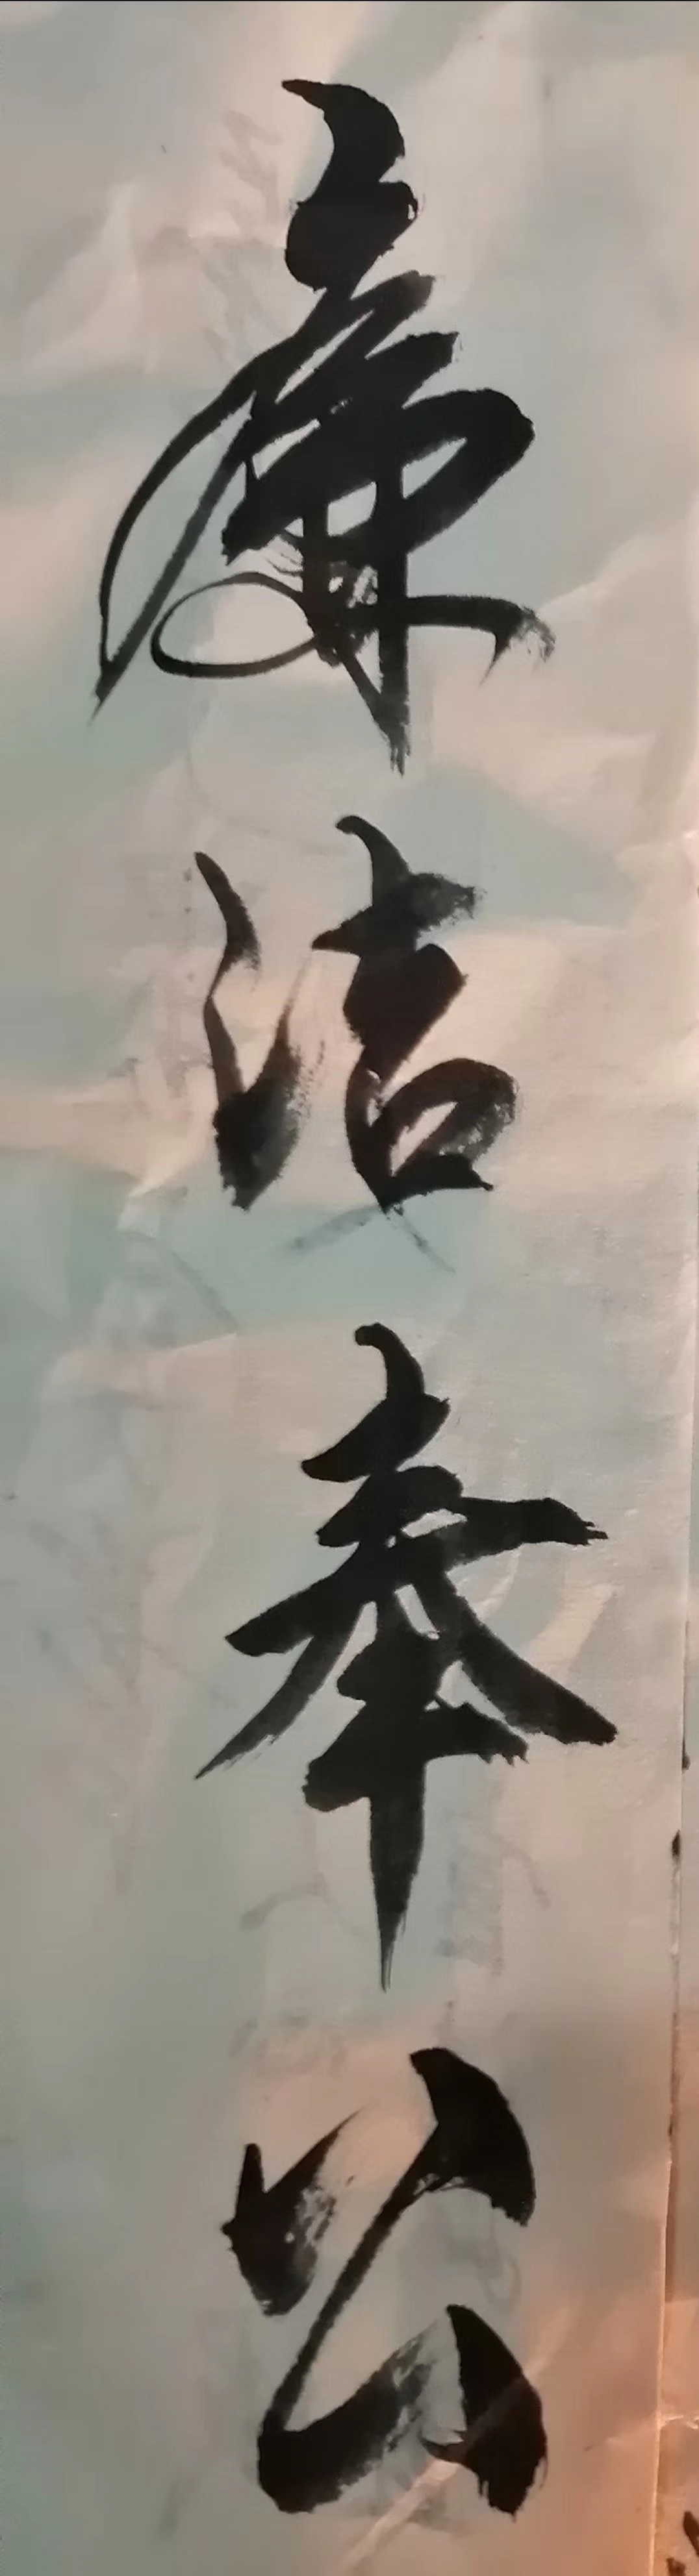 廉洁奉公